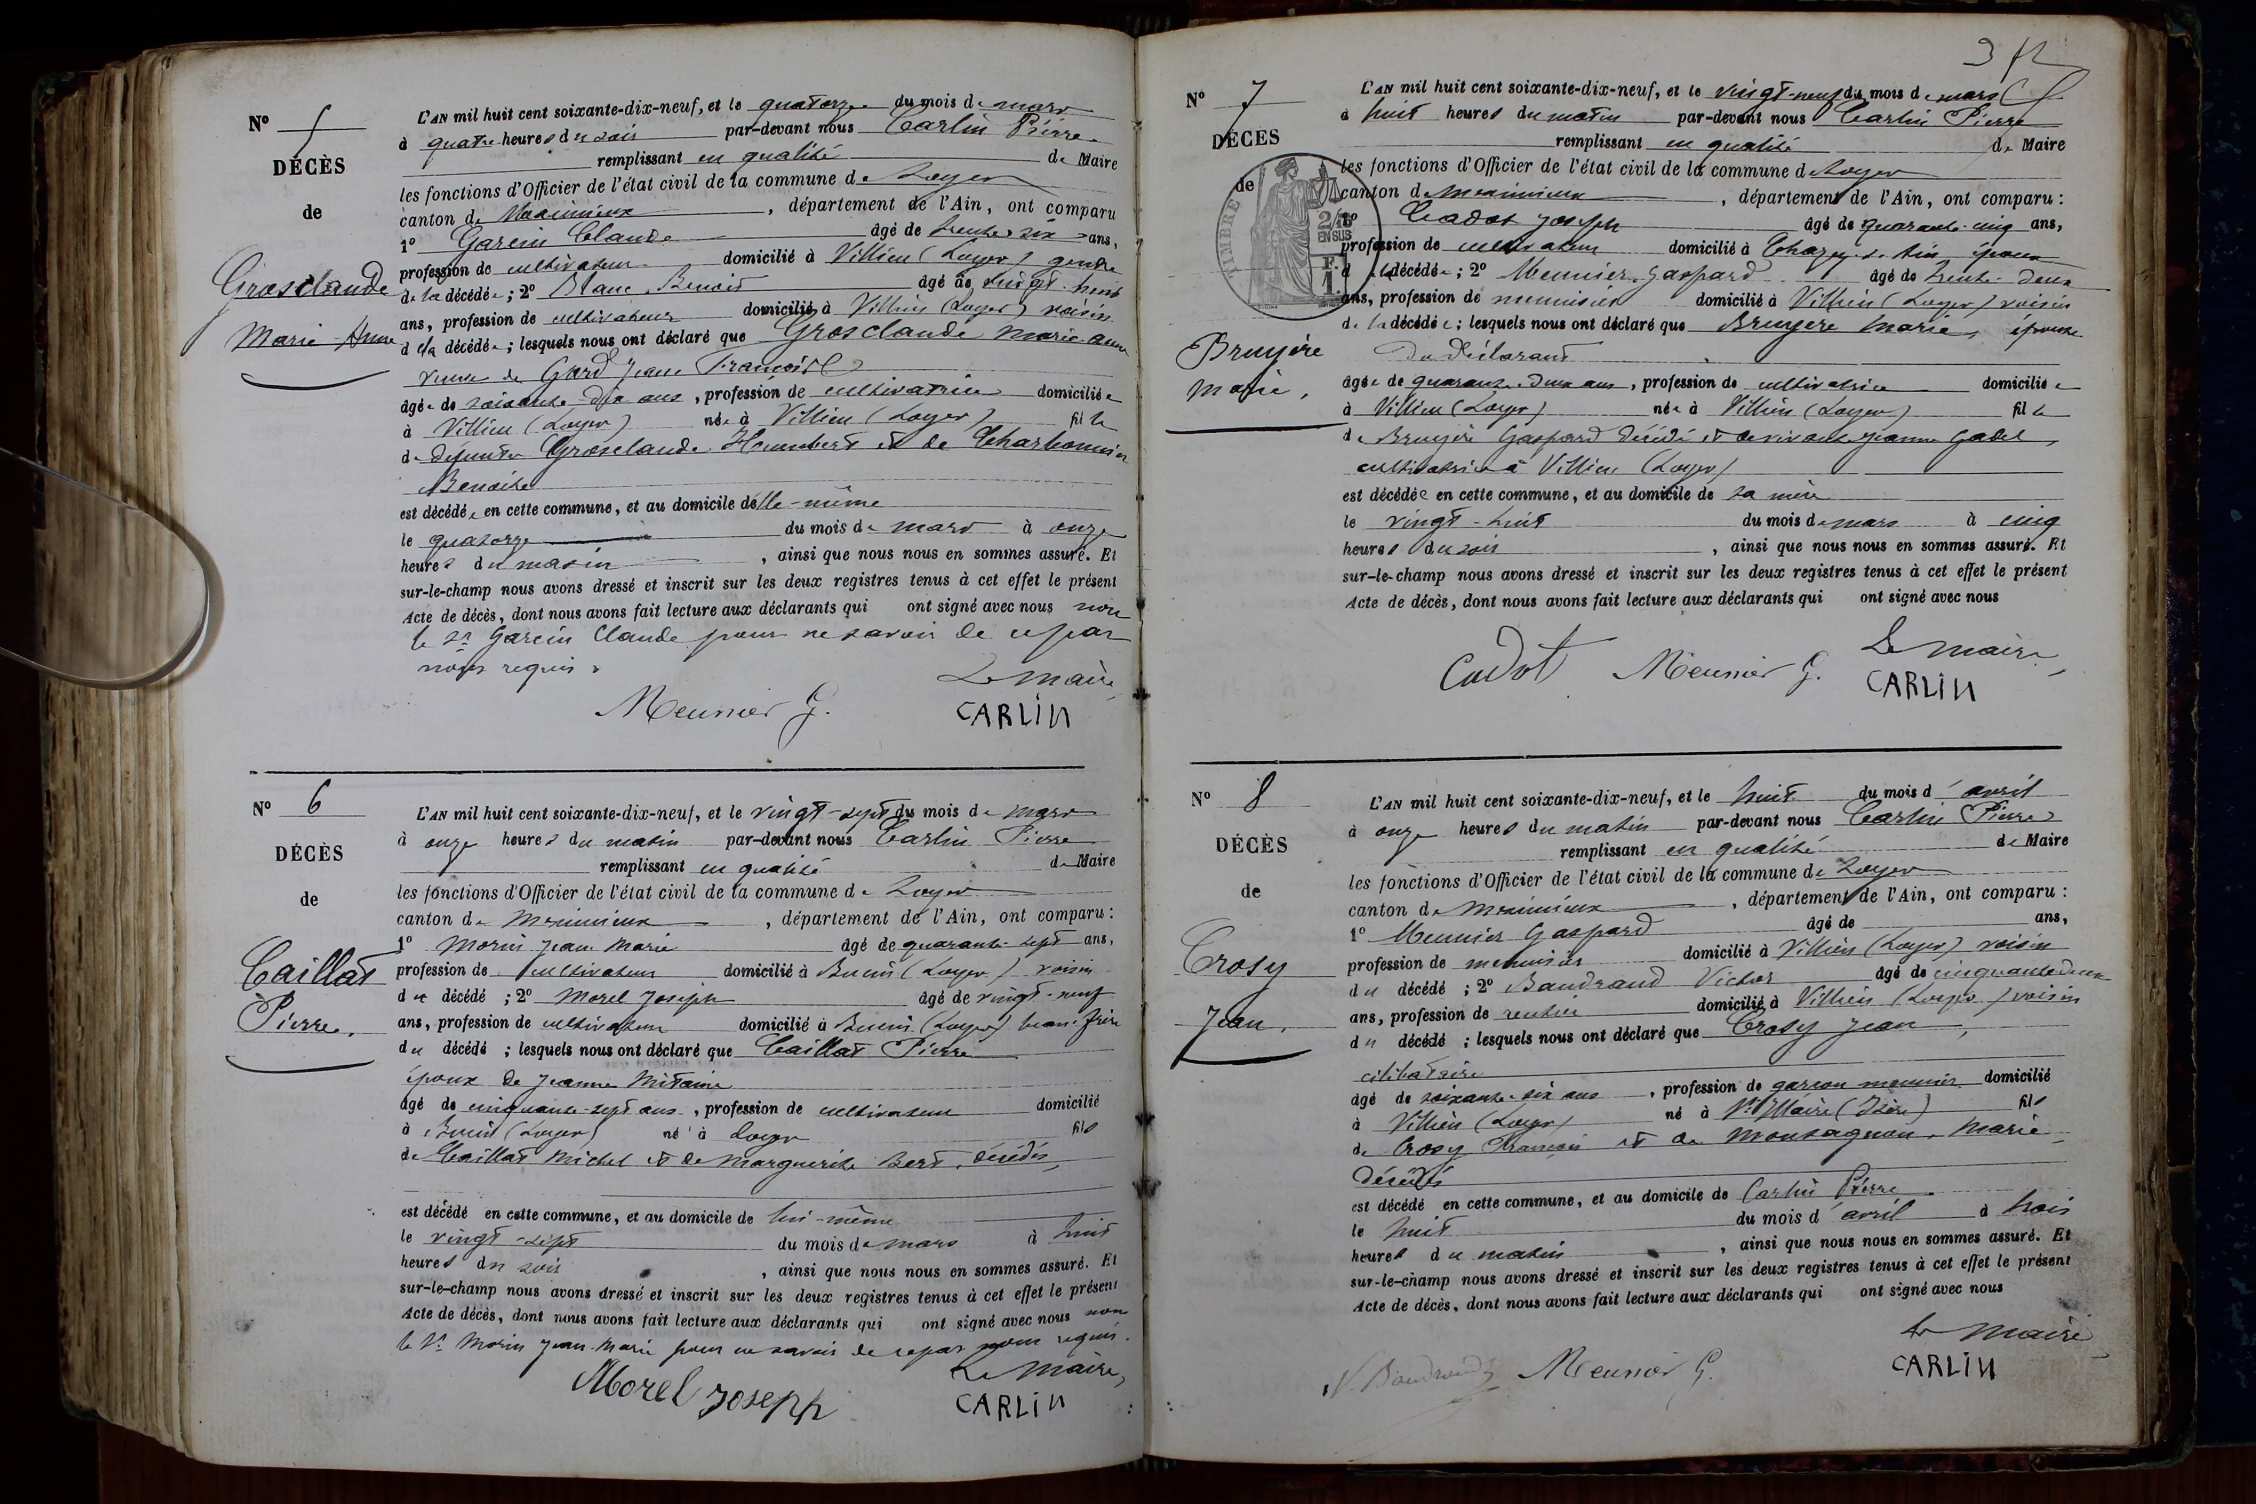 Nº 5
DÉCÈS
de
Grosclaude
Marie Anne
L'AN mil huit cent soixante-dix-neuf, et le quatorze du mois de mars
à quatre heures du soir par-devant nous Carlin Pierre
remplissant en qualité de Maire
les fonctions d'Officier de l'état civil de la commune de Loyes
canton de Meximieux, département de l'Ain, ont comparu
1º Garcin Claude âgé de trente six ans,
profession de cultivateur domicilié à Villieu (Loyes) gendre
de la décédée; 2º Blanc Benoit âgé de vingt-huit
ans, profession de cultivateur domicilié à Villieu (Loyes) voisin
de la décédée; lesquels nous ont déclaré que Grosclaude Marie Anne
veuve de Gard Jean François
âgée de soixante-dix ans, profession de cultivatrice domiciliée
à Villieu (Loyes) née à Villieu (Loyes) fille
de défunts Grosclaude Humbert et de Charbonnier
Benoite
est décédée en cette commune, et au domicile d'elle-même
le quatorze du mois de mars à onze
heures du matin, ainsi que nous nous en sommes assuré. Et
sur-le-champ nous avons dressé et inscrit sur les deux registres tenus à cet effet le présent
Acte de décès, dont nous avons fait lecture aux déclarants qui ont signé avec nous non
le Sr Garcin Claude pour ne savoir de ce par
nous requis.
Le maire,
Meunier G. CARLIN
Nº 6
DÉCÈS
de
Caillat
Pierre.
L'AN mil huit cent soixante-dix-neuf, et le vingt-sept du mois de mars
à onze heures du matin par-devant nous Carlin Pierre
remplissant en qualité de Maire
les fonctions d'Officier de l'état civil de la commune de Loyes
canton de Meximieux, département de l'Ain, ont comparu:
1º Morin Jean Marie âgé de quarante-sept ans,
profession de cultivateur domicilié à Buenis (Loyes) voisin
du décédé; 2º Morel Joseph âgé de vingt-neuf
ans, profession de cultivateur domicilié à (Loyes) beau-frère
du décédé; lesquels nous ont déclaré que Caillat Pierre
époux de Jeanne Mitaine
âgé de cinquante-sept ans, profession de cultivateur domicilié
à (Loyes) né à Loyes fils
de Caillat Michel et de Marguerite Bert, décédés,
est décédé en cette commune, et au domicile de lui-même
le vingt-sept du mois de mars à huit
heures du soir, ainsi que nous nous en sommes assuré. Et
sur-le-champ nous avons dressé et inscrit sur les deux registres tenus à cet effet le présent
Acte de décès, dont nous avons fait lecture aux déclarants qui ont signé avec nous non
le Sr Morin Jean-Marie pour ne savoir de ce par nous requis.
Le Maire,
Morel Joseph CARLIN
Nº 7
DÉCÈS
de
Bruyère
Marie,
TIMBRE
2/10
EN SUS
F.
1.
L'AN mil huit cent soixante-dix-neuf, et le vingt-neuf du mois de mars
à huit heures du matin par-devant nous Carlin Pierre
remplissant en qualité de Maire
les fonctions d'Officier de l'état civil de la commune de Loyes
canton de Meximieux, département de l'Ain, ont comparu:
1º Cadot Joseph âgé de quarante-cinq ans,
profession de cultivateur domicilié à Chazey-s-Ain époux
de la décédée; 2º Meunier Gaspard âgé de trente-deux
ans, profession de menuisier domicilié à Villieu (Loyes) voisin
de la décédée; lesquels nous ont déclaré que Bruyère Marie, épouse
du déclarant
âgée de quarante-deux ans, profession de cultivatrice domiciliée
à Villieu (Loyes) née à Villieu (Loyes) fille
de Bruyère Gaspard décédé et de vivante Jeanne,
cultivatrice à Villieu (Loyes)
est décédée en cette commune, et au domicile de sa mère
le vingt-huit du mois de mars à cinq
heures du soir, ainsi que nous nous en sommes assuré. Et
sur-le-champ nous avons dressé et inscrit sur les deux registres tenus à cet effet le présent
Acte de décès, dont nous avons fait lecture aux déclarants qui ont signé avec nous
Le maire,
Cadot Meunier G. CARLIN
Nº 8
DÉCÈS
de
Crosy
Jean,
L'AN mil huit cent soixante-dix-neuf, et le huit du mois d'avril
à onze heures du matin par-devant nous Carlin Pierre
remplissant en qualité de Maire
les fonctions d'Officier de l'état civil de la commune de Loyes
canton de Meximieux, département de l'Ain, ont comparu:
1º Meunier Gaspard âgé de ans,
profession de menuisier domicilié à Villieu (Loyes) voisin
du décédé; 2º Baudrand Victor âgé de cinquante deux
ans, profession de rentier domicilié à Villieu (Loyes) voisin
du décédé; lesquels nous ont déclaré que Crosy Jean,
célibataire
âgé de soixante-six ans, profession de garçon meunier domicilié
à Villieu (Loyes) né à St Hilaire (Isère) fils
de Crosy François et de Montagnon Marie,
décédés
est décédé en cette commune, et au domicile de Carlin Pierre
le huit du mois d'avril à trois
heures du matin, ainsi que nous nous en sommes assuré. Et
sur-le-champ nous avons dressé et inscrit sur les deux registres tenus à cet effet le présent
Acte de décès, dont nous avons fait lecture aux déclarants qui ont signé avec nous
Le maire
V. Baudrand Meunier G. CARLIN